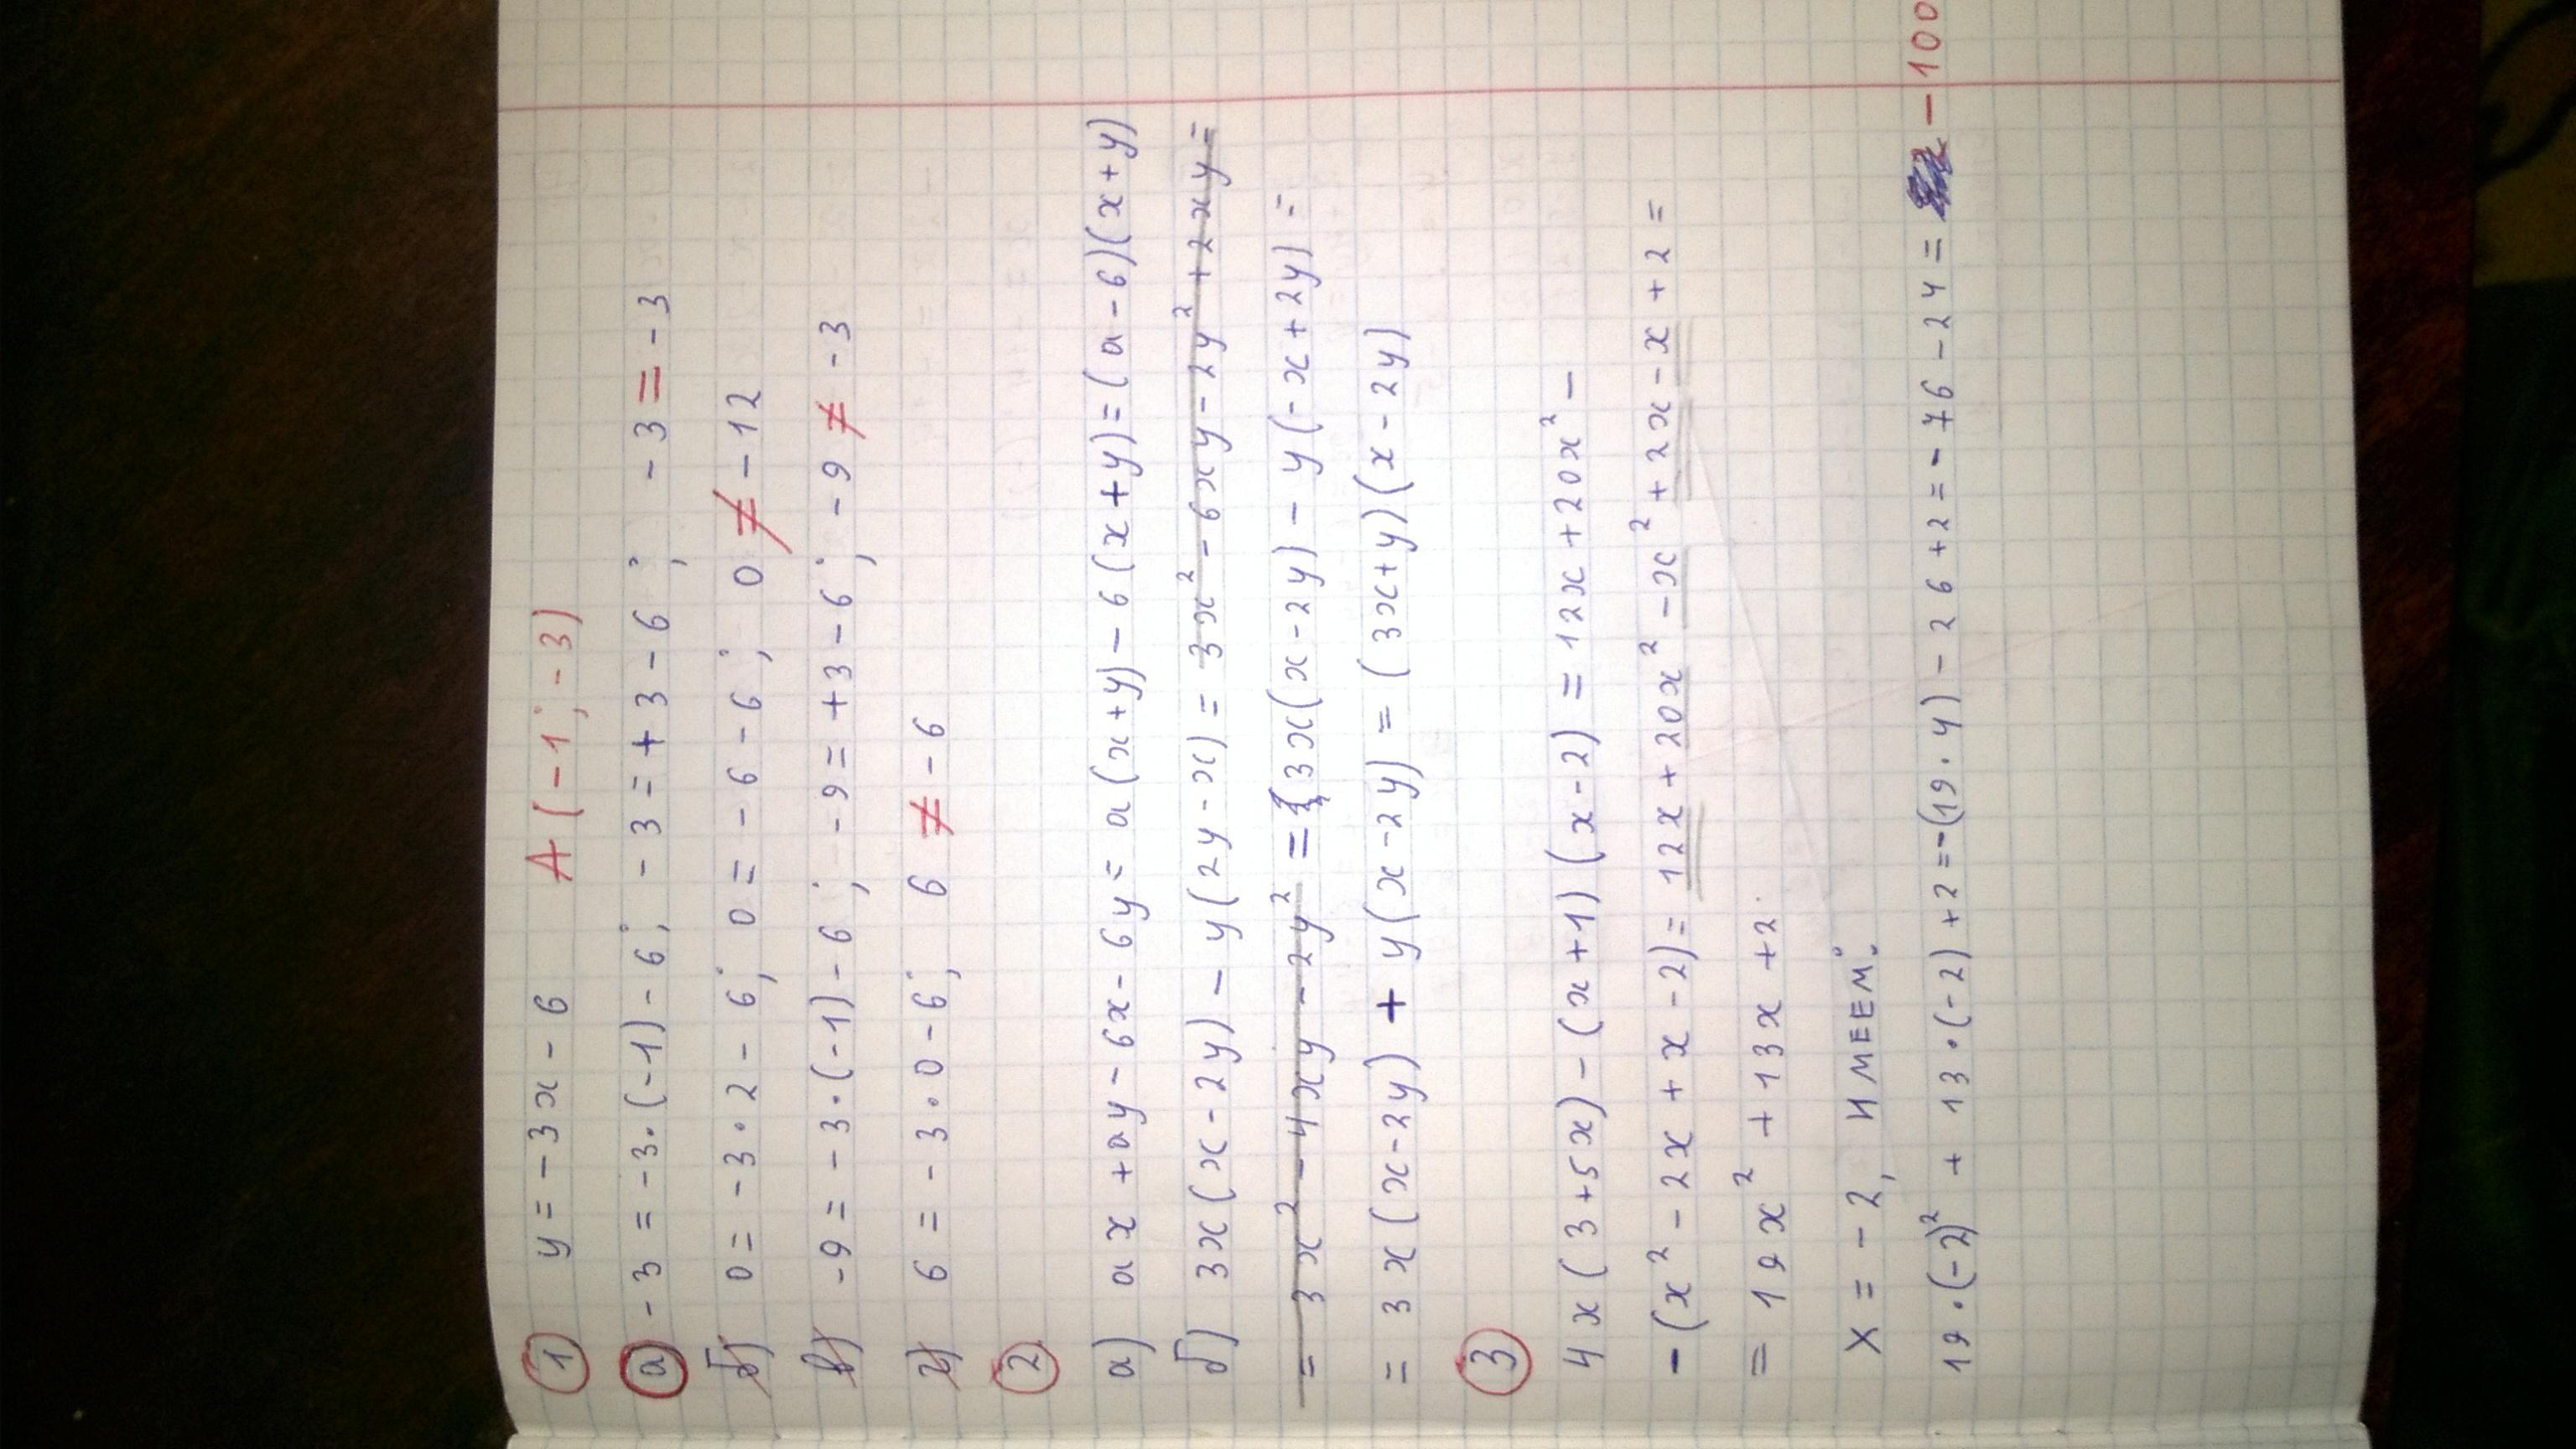 ① y = -3x - 6 A(-1; -3)
ⓐ -3 = -3·(-1) - 6; -3 = +3 - 6; -3 = -3
б) 0 = -3·2 - 6; 0 = -6 - 6; 0 ≠ -12
в) -9 = -3·(-1) - 6; -9 = +3 - 6; -9 ≠ -3
г) 6 = -3·0 - 6; 6 ≠ -6
②
а) ax + ay - 6x - 6y = a(x+y) - 6(x+y) = (a-6)(x+y)
б) 3x(x-2y) - y(2y-x) = 3x² - 6xy - 2y² + 2xy =
= 3x² - 4xy - 2y² = 3x(x-2y) - y(-x+2y) =
= 3x(x-2y) + y(x-2y) = (3x+y)(x-2y)
③
4x(3+5x) - (x+1)(x-2) = 12x + 20x² -
- (x² - 2x + x - 2) = 12x + 20x² - x² + 2x - x + 2 =
= 19x² + 13x + 2
X = -2, ИМЕЕМ:
19·(-2)² + 13·(-2) + 2 = -(19·4) - 26 + 2 = -76 - 24 = -100